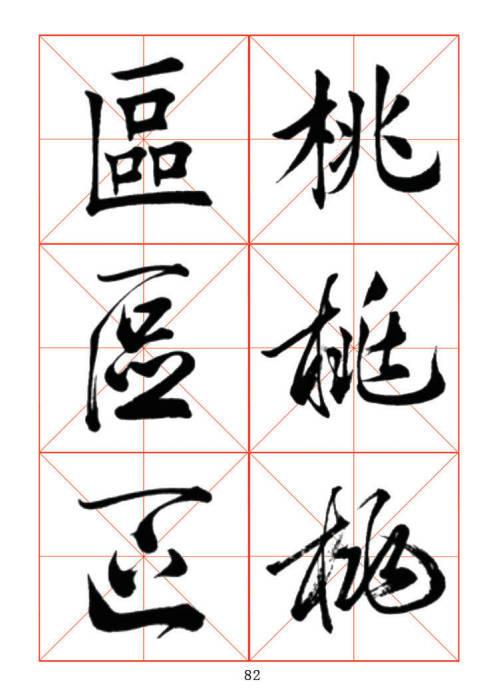 桃
桃
桃
區
區
區
82